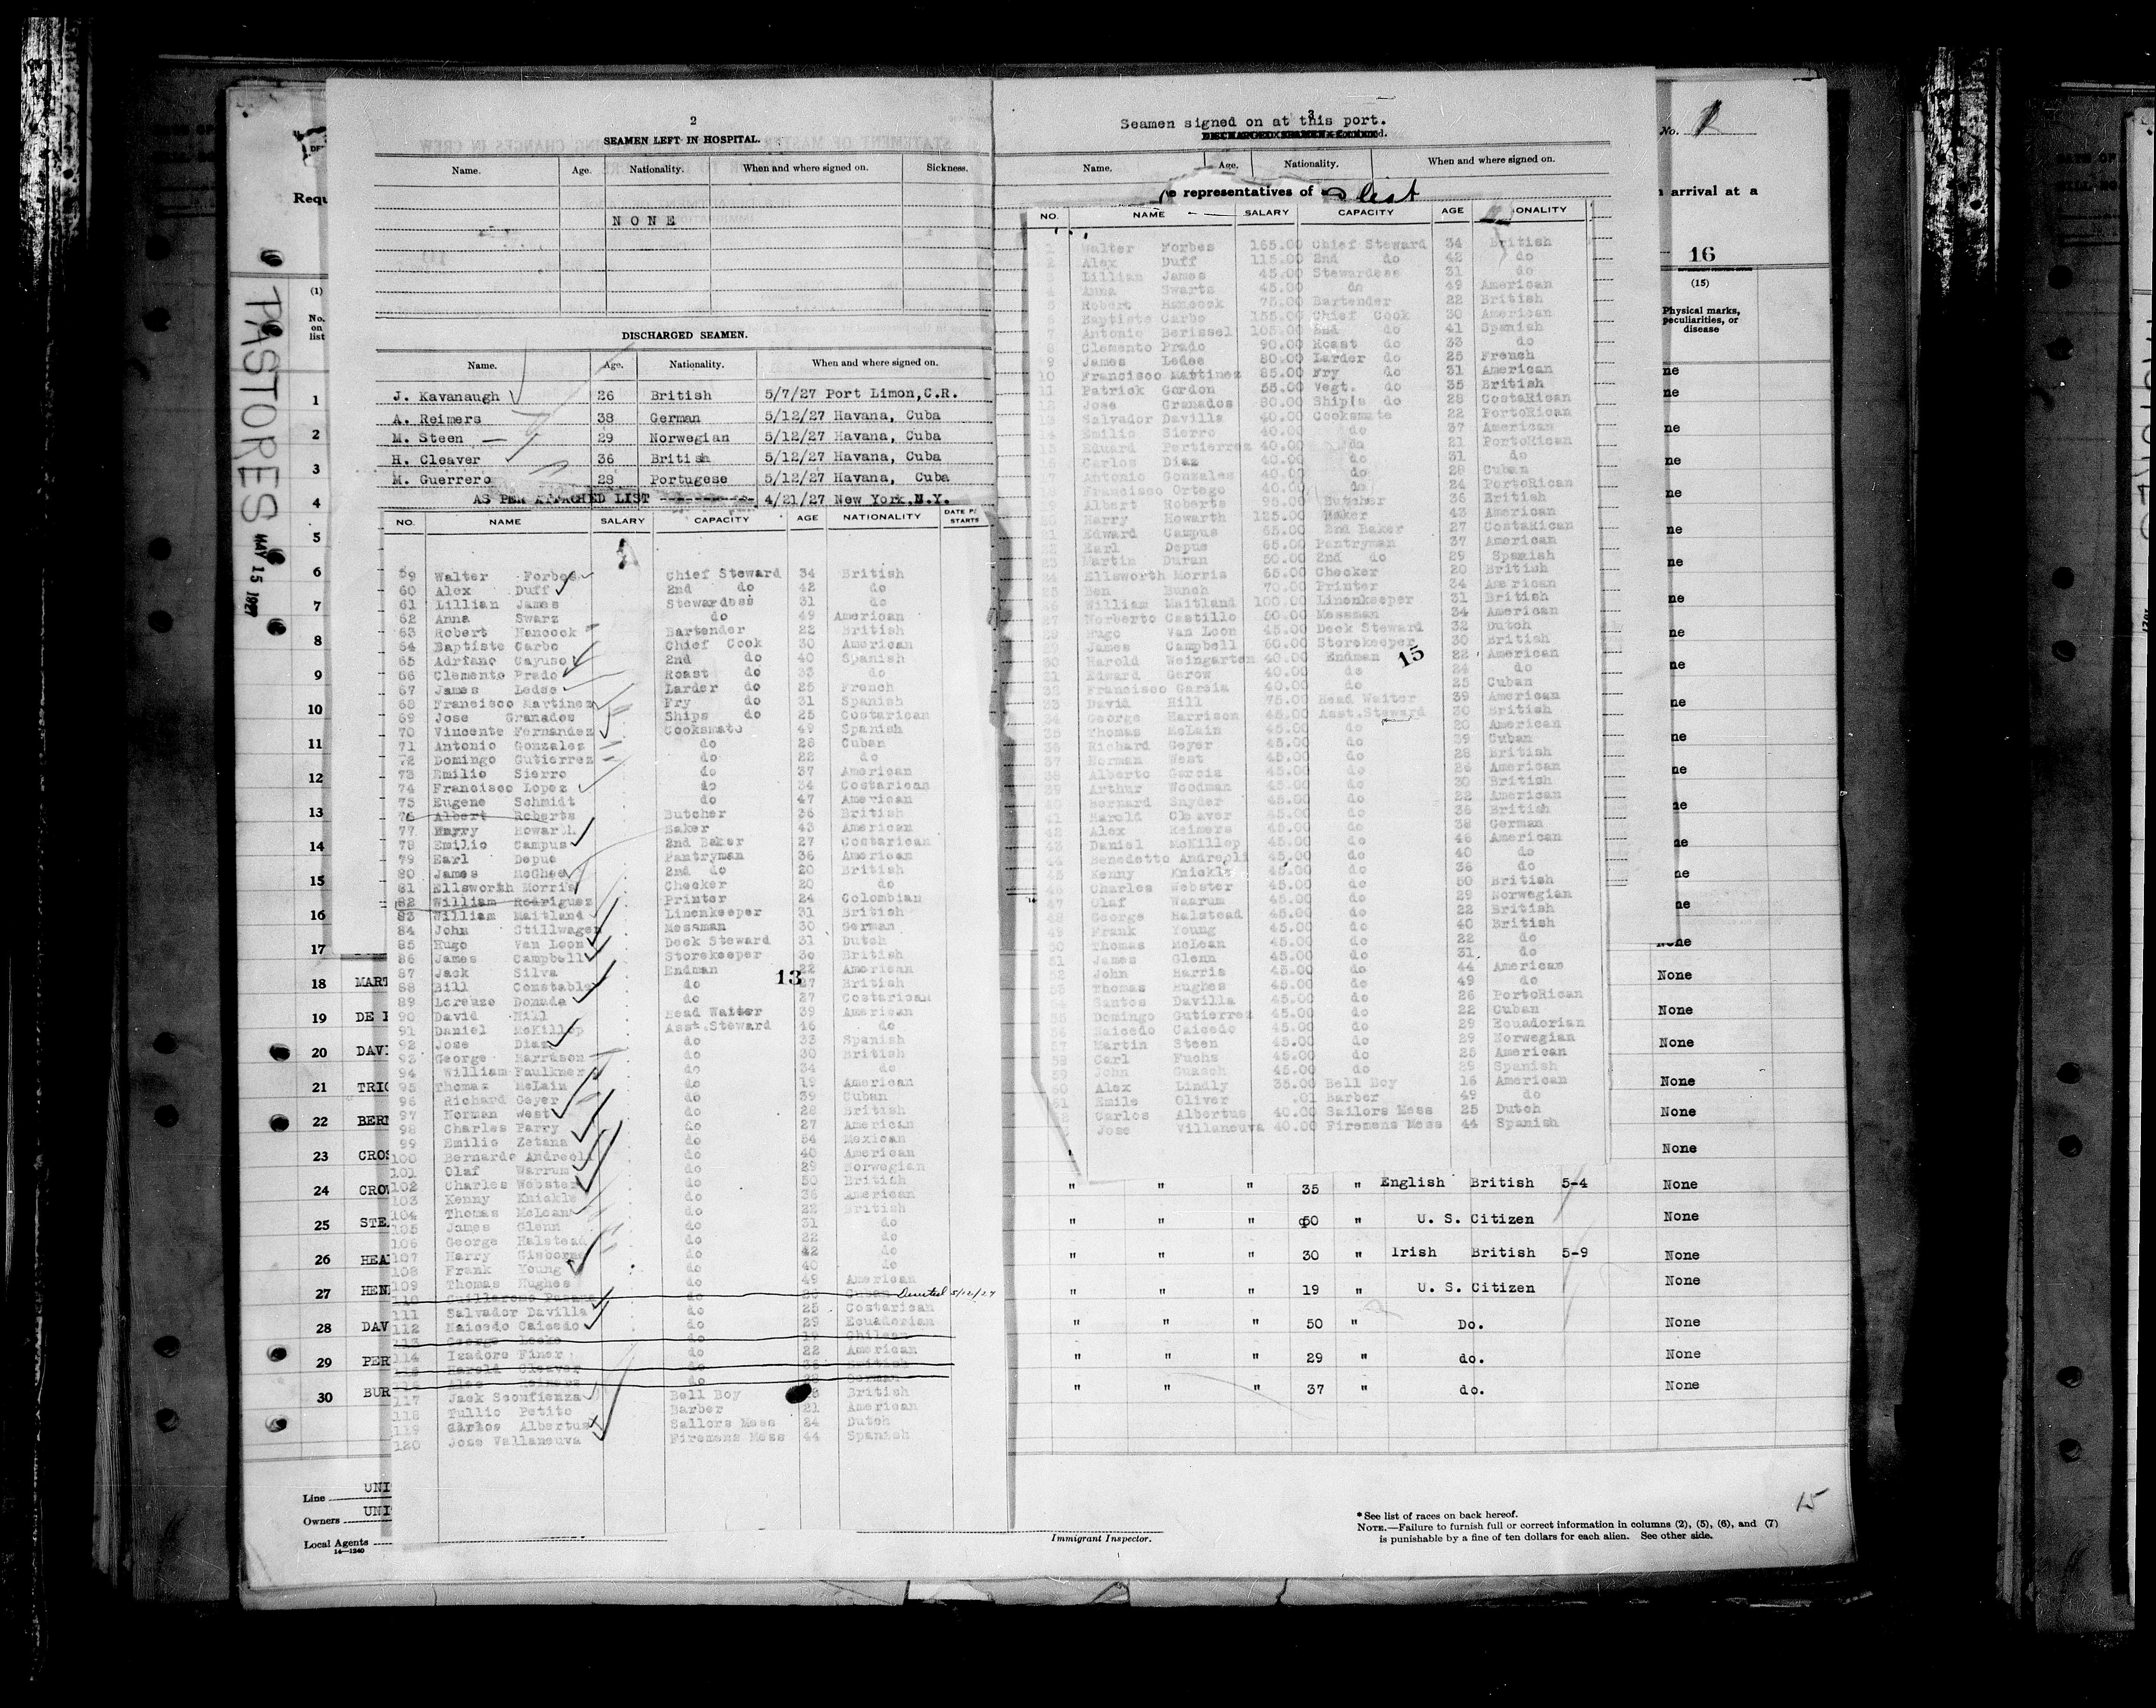 PASTORES MAY 15 1927
2
SEAMEN LEFT IN HOSPITAL
Name. Age. Nationality. When and where signed on. Sickness.
NONE
DISCHARGED SEAMEN.
Name. Age. Nationality. When and where signed on.
J. Kavanaugh 26 British 5/7/27 Port Limon,C.R.
A. Reimers 38 German 5/12/27 Havana, Cuba
M. Steen 29 Norwegian 5/12/27 Havana, Cuba
H. Cleaver 36 British 5/12/27 Havana, Cuba
M. Guerrero 28 Portugese 5/12/27 Havana, Cuba
AS PER ATTACHED LIST 4/21/27 New York,N.Y.
NO. NAME SALARY CAPACITY AGE NATIONALITY STARTS
59 Walter Forbes Chief Steward 34 British
60 Alex Duff 2nd do 42 do
61 Lillian James Stewardess 31 do
62 Anna Swarz do 49 American
63 Robert Hancock Bartender 22 British
64 Baptiste Carbo Chief Cook 30 American
65 Adriano Cayuso 2nd do 40 Spanish
66 Clemento Prado Roast do 33 do
67 James Ledee Larder do 25 French
68 Francisco Martinez Fry do 31 Spanish
69 Jose Granados Ships do 25 Costarican
70 Vincente Fernandez Cooksmate 49 Spanish
71 Antonio Gonzales do 28 Cuban
72 Domingo Gutierrez do 22 do
73 Emilio Sierro do 37 American
74 Francisco Lopez do 34 Costarican
75 Eugene Schmidt do 47 American
76 Albert Roberts Butcher 36 British
77 Harry Howarth Baker 43 American
78 Emilio Campus 2nd Baker 27 Costarican
79 Earl Depue Pantryman 36 American
80 James McGhee 2nd do 20 British
81 Ellsworth Morris Checker 20 do
82 William Rodriguez Printer 24 Colombian
83 William Maitland Linenkeeper 31 British
84 John Stillwagen Messman 30 German
85 Hugo Van Loon Deck Steward 31 Dutch
86 James Campbell Storekeeper 30 British
87 Jack Silva Endman 22 American
88 Bill Constable do 27 British
89 Lorenzo Donada do 27 Costarican
90 David Hill Head Waiter 39 American
91 Daniel McKillop Asst.Steward 46 do
92 Jose Diaz do 33 Spanish
93 George Harrison do 30 British
94 William Faulkner do 34 do
95 Thomas McLain do 19 American
96 Richard Geyer do 39 Cuban
97 Norman West do 28 British
98 Charles Parry do 27 American
99 Emilio Zetana do 54 Mexican
100 Bernardo Andreoli do 40 American
101 Olaf Warrum do 29 Norwegian
102 Charles Webster do 50 British
103 Kenny Knickle do 36 American
104 Thomas McLean do 22 British
105 James Glenn do 31 do
106 George Halstead do 22 do
107 Harry Gisborne do 42 do
108 Frank Young do 40 do
109 Thomas Hughes do 49 American
110 Guillermo do Cuban Deserted 5/12/27
111 Salvador Davilla do 25 Costarican
112 Naicedo Caicedo do 29 Ecuadorian
113 George do 19 Chilean
114 Izadore Finer do 22 American
115 Harold Cleaver do 36 British
116 Alex Reimers do 38 German
117 Jack Sconfienza Bell Boy British
118 Tullio Petito Barber 21 American
119 Carlos Albertus Sailors Mess 24 Dutch
120 Jose Vallaneuva Firemens Mess 44 Spanish
13
3
Seamen signed on at this port.
Name. Age. Nationality. When and where signed on.
representatives of list
NO. NAME SALARY CAPACITY AGE
1 Walter Forbes 165.00 Chief Steward 34 British
2 Alex Duff 115.00 2nd do 42 do
3 Lillian James 45.00 Stewardess 31 do
4 Anna Swarts 45.00 do 49 American
5 Robert Hancock 75.00 Bartender 22 British
6 Baptiste Carbo 155.00 Chief Cook 30 American
7 Antonio Berissel 105.00 2nd do 41 Spanish
8 Clemento Prado 90.00 Roast do 33 do
9 James Ledee 80.00 Larder do 25 French
10 Francisco Martinez 85.00 Fry do 31 American
11 Patrick Gordon 55.00 Vegt. do 35 British
12 Jose Granados 80.00 Ship's do 28 CostaRican
13 Salvador Davilla 40.00 Cooksmate 22 PortoRican
14 Emilio Sierro 40.00 do 37 American
15 Eduard Pertierrez 40.00 do 21 PortoRican
16 Carlos Diaz 40.00 do 31 do
17 Antonio Gonzales 40.00 do 28 Cuban
18 Francisco Ortego 40.00 do 24 PortoRican
19 Albert Roberts 95.00 Butcher 36 British
20 Harry Howarth 125.00 Baker 43 American
21 Edward Campus 65.00 2nd Baker 27 CostaRican
22 Earl Depue 65.00 Pantryman 37 American
23 Martin Duran 50.00 2nd do 29 Spanish
24 Ellsworth Morris 65.00 Checker 20 British
25 Ben Bunch 70.00 Printer 34 American
26 William Maitland 100.00 Linenkeeper 31 British
27 Norberto Castillo 50.00 Messman 34 American
28 Hugo Van Loon 45.00 Deck Steward 32 Dutch
29 James Campbell 60.00 Storekeeper 30 British
30 Harold Weingarten 40.00 Endman 22 American
31 Edward Gerow 40.00 do 24 do
32 Francisco Garsia 40.00 do 25 Cuban
33 David Hill 75.00 Head Waiter 39 American
34 George Harrison 45.00 Asst.Steward 30 British
35 Thomas McLain 45.00 do 20 American
36 Richard Geyer 45.00 do 39 Cuban
37 Norman West 45.00 do 28 British
38 Alberto Garcia 45.00 do 26 American
39 Arthur Woodman 45.00 do 30 British
40 Bernard Snyder 45.00 do 22 American
41 Harold Cleaver 45.00 do 36 British
42 Alex Reimers 45.00 do 38 German
43 Daniel McKillop 45.00 do 46 American
44 Benedetto Andreoli 45.00 do 40 do
45 Kenny Knickle 45.00 do 36 do
46 Charles Webster 45.00 do 50 British
47 Olaf Waarum 45.00 do 29 Norwegian
48 George Halstead 45.00 do 22 British
49 Frank Young 45.00 do 40 British
50 Thomas McLean 45.00 do 22 do
51 James Glenn 45.00 do 31 do
52 John Harris 45.00 do 44 American
53 Thomas Hughes 45.00 do 49 do
54 Santos Davilla 45.00 do 26 PortoRican
55 Domingo Gutierrez 45.00 do 22 Cuban
56 Naicedo Caicedo 45.00 do 29 Ecuadorian
57 Martin Steen 45.00 do 29 Norwegian
58 Carl Fuchs 45.00 do 25 American
59 John Guasch 45.00 do 29 Spanish
60 Alex Lindly 35.00 Bell Boy 16 American
61 Emile Oliver .01 Barber 49 do
Carlos Albertus 40.00 Sailors Mess 25 Dutch
Jose Villaneuva 40.00 Firemens Mess 44 Spanish
15
No. 1
arrival at a
16
(15)
Physical marks, peculiarities, or disease
Requ
(1)
No. on list
1
2
3
4
5
6
7
8
9
10
11
12
13
14
15
16
17
18 MART None
19 DE None
20 DAVI None
21 TRIG None
22 BERN None
23 CROS None
24 CROW " " " 35 " English British 5-4 None
25 STE " " " 50 " U. S. Citizen None
26 HEA " " " 30 " Irish British 5-9 None
27 HEN " " " 19 " U. S. Citizen None
28 DAV " " " 50 " Do. None
29 PER " " " 29 " do. None
30 BUR " " " 37 " do. None
Line UNI
Owners UNI
Local Agents
14—1240
Immigrant Inspector.
* See list of races on back hereof.
NOTE.—Failure to furnish full or correct information in columns (2), (5), (6), and (7)
is punishable by a fine of ten dollars for each alien. See other side.
15